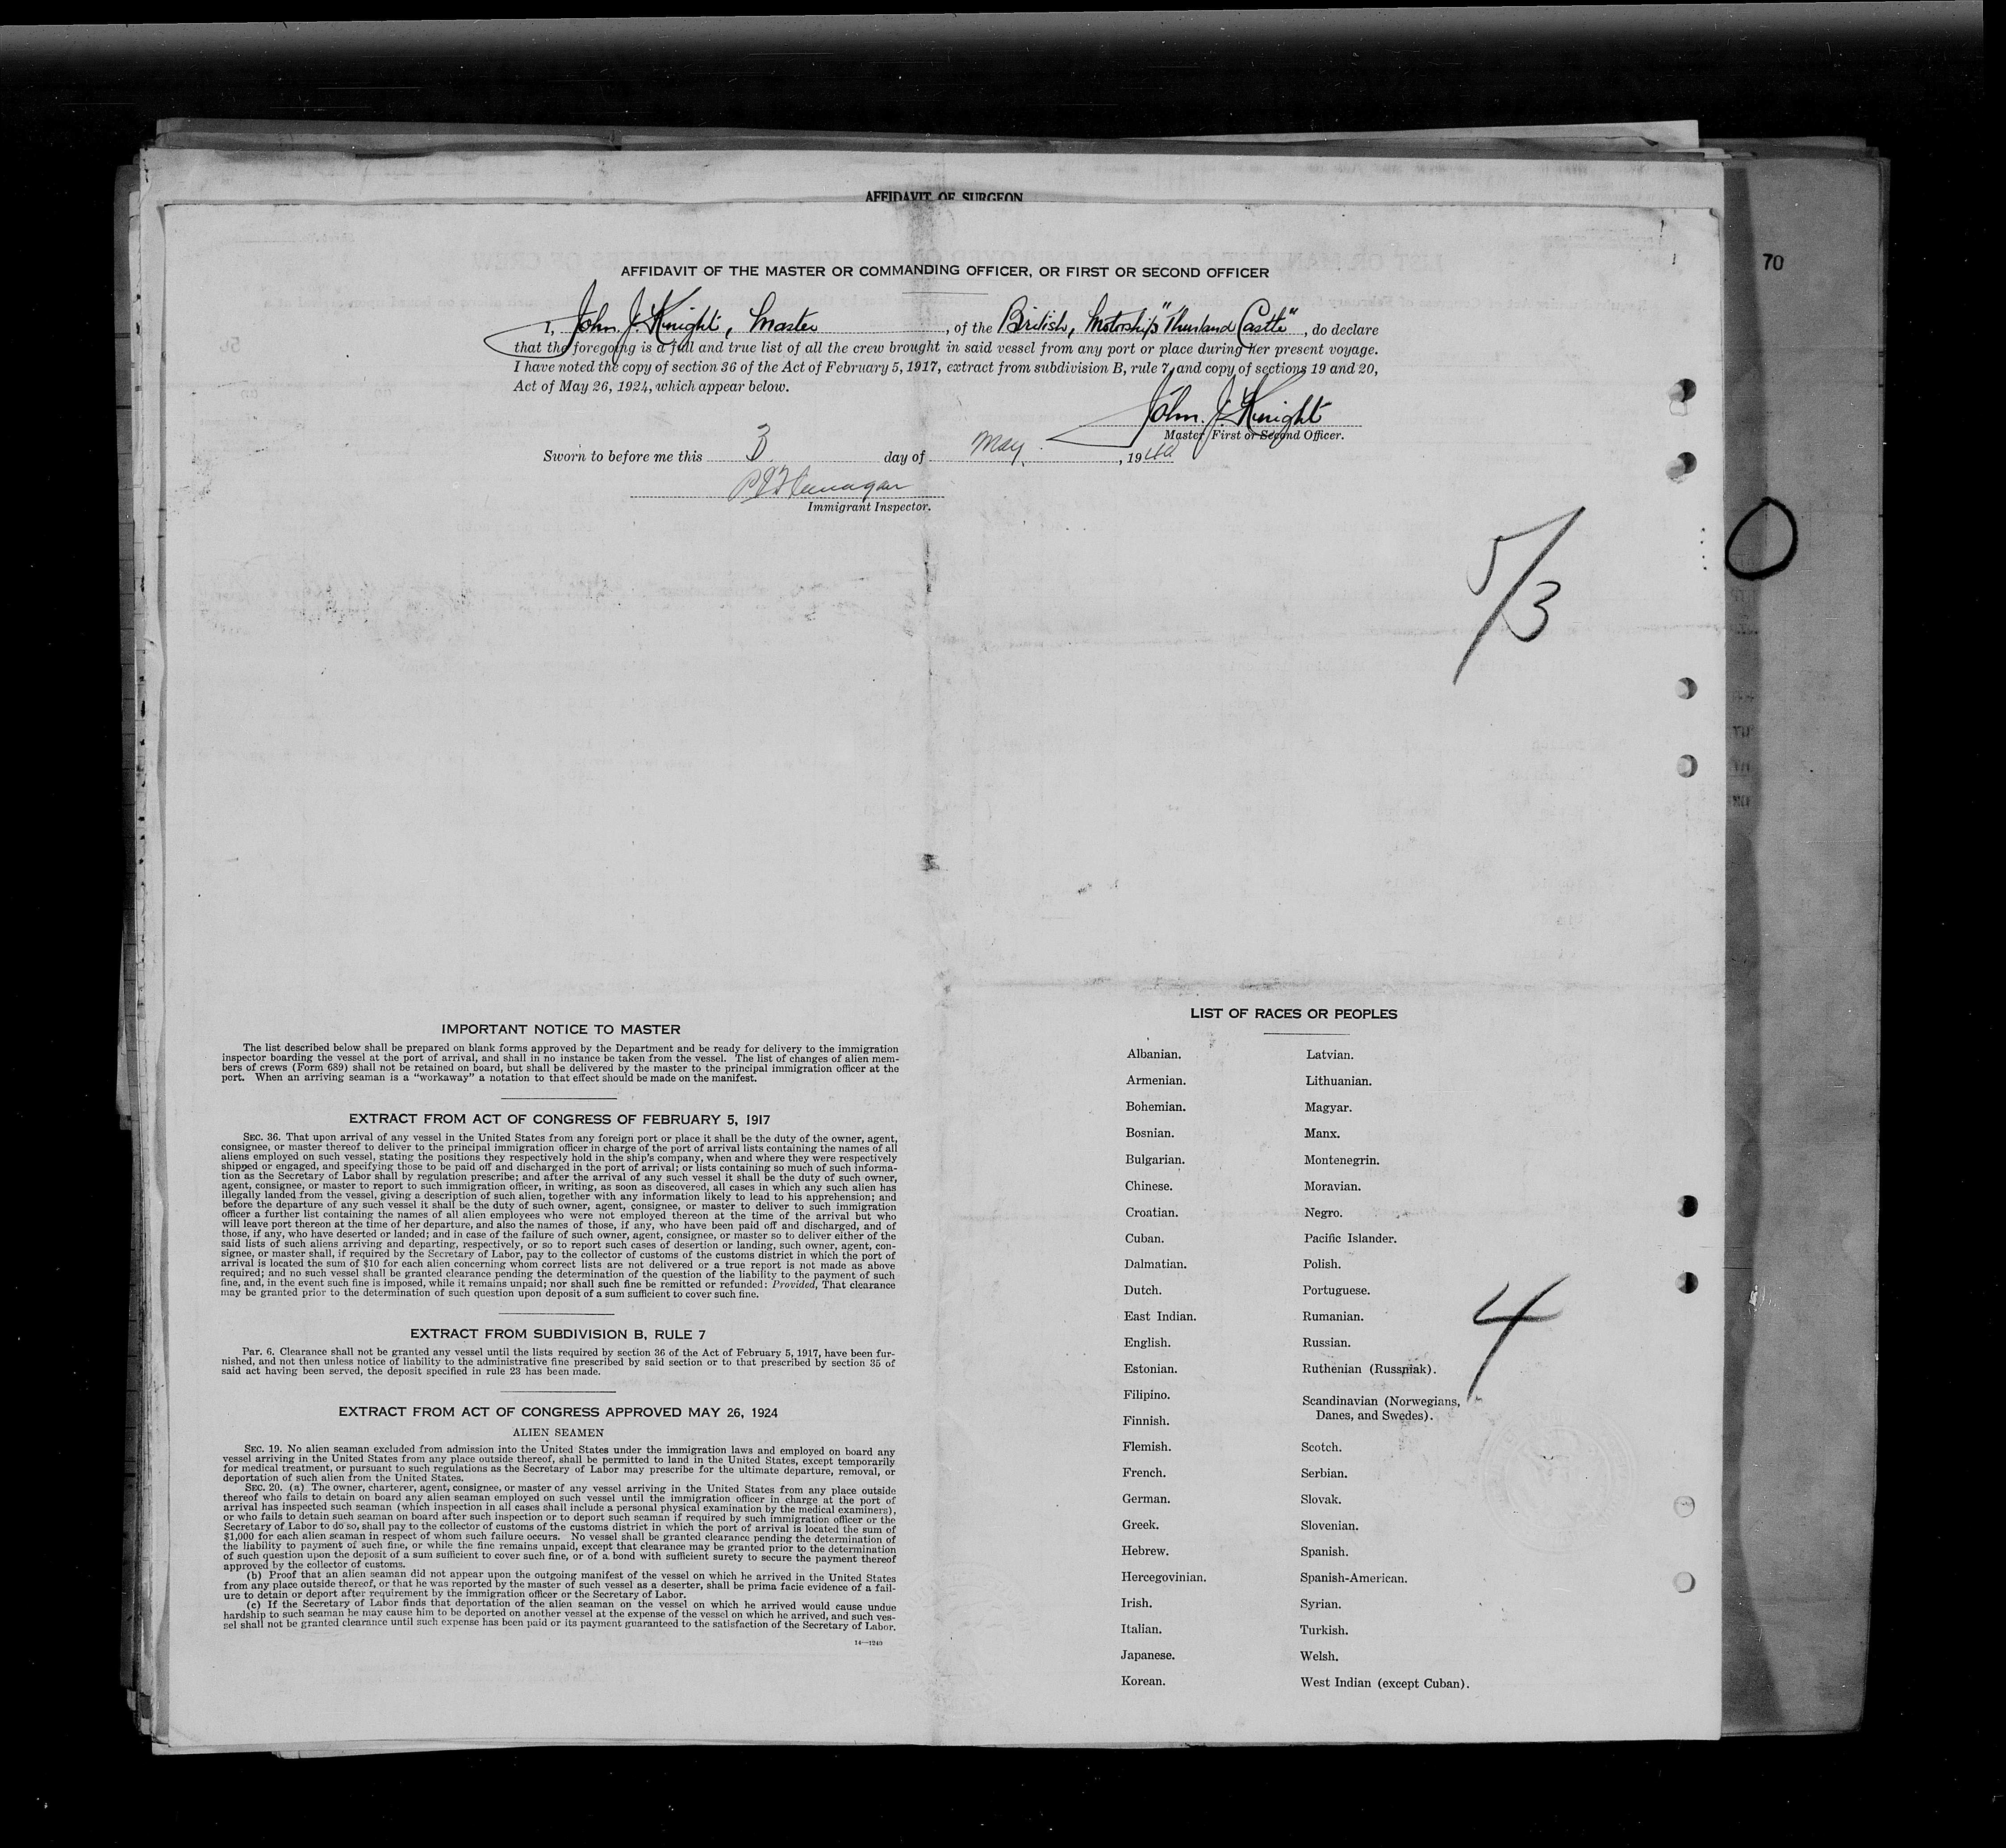 AFFIDAVIT OF SURGEON
70
AFFIDAVIT OF THE MASTER OR COMMANDING OFFICER, OR FIRST OR SECOND OFFICER
I, John. J. Knight, Master, of the British, Motorship "Thurland Castle", do declare
that the foregoing is a full and true list of all the crew brought in said vessel from any port or place during her present voyage.
I have noted the copy of section 36 of the Act of February 5, 1917, extract from subdivision B, rule 7, and copy of sections 19 and 20,
Act of May 26, 1924, which appear below.
John. J. Knight
Master, First or Second Officer.
Sworn to before me this 3 day of May, 1940
Immigrant Inspector.
5/3
IMPORTANT NOTICE TO MASTER
The list described below shall be prepared on blank forms approved by the Department and be ready for delivery to the immigration
inspector boarding the vessel at the port of arrival, and shall in no instance be taken from the vessel. The list of changes of alien mem-
bers of crews (Form 689) shall not be retained on board, but shall be delivered by the master to the principal immigration officer at the
port. When an arriving seaman is a "workaway" a notation to that effect should be made on the manifest.
EXTRACT FROM ACT OF CONGRESS OF FEBRUARY 5, 1917
SEC. 36. That upon arrival of any vessel in the United States from any foreign port or place it shall be the duty of the owner, agent,
consignee, or master thereof to deliver to the principal immigration officer in charge of the port of arrival lists containing the names of all
aliens employed on such vessel, stating the positions they respectively hold in the ship's company, when and where they were respectively
shipped or engaged, and specifying those to be paid off and discharged in the port of arrival; or lists containing so much of such informa-
tion as the Secretary of Labor shall by regulation prescribe; and after the arrival of any such vessel it shall be the duty of such owner,
agent, consignee, or master to report to such immigration officer, in writing, as soon as discovered, all cases in which any such alien has
illegally landed from the vessel, giving a description of such alien, together with any information likely to lead to his apprehension; and
before the departure of any such vessel it shall be the duty of such owner, agent, consignee, or master to deliver to such immigration
officer a further list containing the names of all alien employees who were not employed thereon at the time of the arrival but who
will leave port thereon at the time of her departure, and also the names of those, if any, who have been paid off and discharged, and of
those, if any, who have deserted or landed; and in case of the failure of such owner, agent, consignee, or master so to deliver either of the
said lists of such aliens arriving and departing, respectively, or so to report such cases of desertion or landing, such owner, agent, con-
signee, or master shall, if required by the Secretary of Labor, pay to the collector of customs of the customs district in which the port of
arrival is located the sum of $10 for each alien concerning whom correct lists are not delivered or a true report is not made as above
required; and no such vessel shall be granted clearance pending the determination of the question of the liability to the payment of such
fine, and, in the event such fine is imposed, while it remains unpaid; nor shall such fine be remitted or refunded: Provided, That clearance
may be granted prior to the determination of such question upon deposit of a sum sufficient to cover such fine.
EXTRACT FROM SUBDIVISION B, RULE 7
Par. 6. Clearance shall not be granted any vessel until the lists required by section 36 of the Act of February 5, 1917, have been fur-
nished, and not then unless notice of liability to the administrative fine prescribed by said section or to that prescribed by section 35 of
said act having been served, the deposit specified in rule 23 has been made.
EXTRACT FROM ACT OF CONGRESS APPROVED MAY 26, 1924
ALIEN SEAMEN
SEC. 19. No alien seaman excluded from admission into the United States under the immigration laws and employed on board any
vessel arriving in the United States from any place outside thereof, shall be permitted to land in the United States, except temporarily
for medical treatment, or pursuant to such regulations as the Secretary of Labor may prescribe for the ultimate departure, removal, or
deportation of such alien from the United States.
SEC. 20. (a) The owner, charterer, agent, consignee, or master of any vessel arriving in the United States from any place outside
thereof who fails to detain on board any alien seaman employed on such vessel until the immigration officer in charge at the port of
arrival has inspected such seaman (which inspection in all cases shall include a personal physical examination by the medical examiners),
or who fails to detain such seaman on board after such inspection or to deport such seaman if required by such immigration officer or the
Secretary of Labor to do so, shall pay to the collector of customs of the customs district in which the port of arrival is located the sum of
$1,000 for each alien seaman in respect of whom such failure occurs. No vessel shall be granted clearance pending the determination of
the liability to payment of such fine, or while the fine remains unpaid, except that clearance may be granted prior to the determination
of such question upon the deposit of a sum sufficient to cover such fine, or of a bond with sufficient surety to secure the payment thereof
approved by the collector of customs.
(b) Proof that an alien seaman did not appear upon the outgoing manifest of the vessel on which he arrived in the United States
from any place outside thereof, or that he was reported by the master of such vessel as a deserter, shall be prima facie evidence of a fail-
ure to detain or deport after requirement by the immigration officer or the Secretary of Labor.
(c) If the Secretary of Labor finds that deportation of the alien seaman on the vessel on which he arrived would cause undue
hardship to such seaman he may cause him to be deported on another vessel at the expense of the vessel on which he arrived, and such ves-
sel shall not be granted clearance until such expense has been paid or its payment guaranteed to the satisfaction of the Secretary of Labor.
14—1240
LIST OF RACES OR PEOPLES
Albanian.
Armenian.
Bohemian.
Bosnian.
Bulgarian.
Chinese.
Croatian.
Cuban.
Dalmatian.
Dutch.
East Indian.
English.
Estonian.
Filipino.
Finnish.
Flemish.
French.
German.
Greek.
Hebrew.
Hercegovinian.
Irish.
Italian.
Japanese.
Korean.
Latvian.
Lithuanian.
Magyar.
Manx.
Montenegrin.
Moravian.
Negro.
Pacific Islander.
Polish.
Portuguese.
Rumanian.
Russian.
Ruthenian (Russniak).
Scandinavian (Norwegians,
Danes, and Swedes).
Scotch.
Serbian.
Slovak.
Slovenian.
Spanish.
Spanish-American.
Syrian.
Turkish.
Welsh.
West Indian (except Cuban).
4